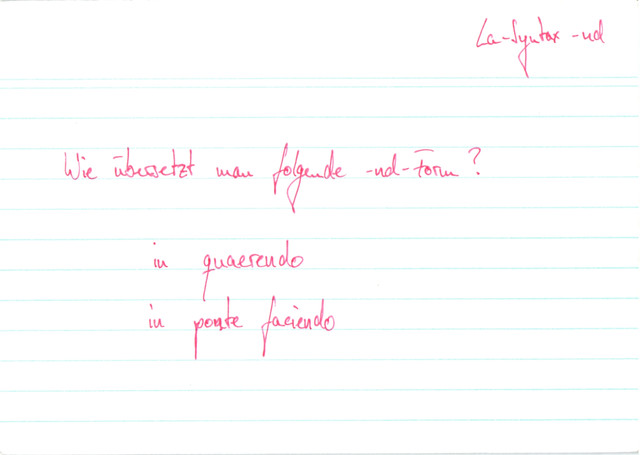 La-Syntax -nd
Wie übersetzt man folgende -nd-Form?
in quaerendo
in ponte faciendo